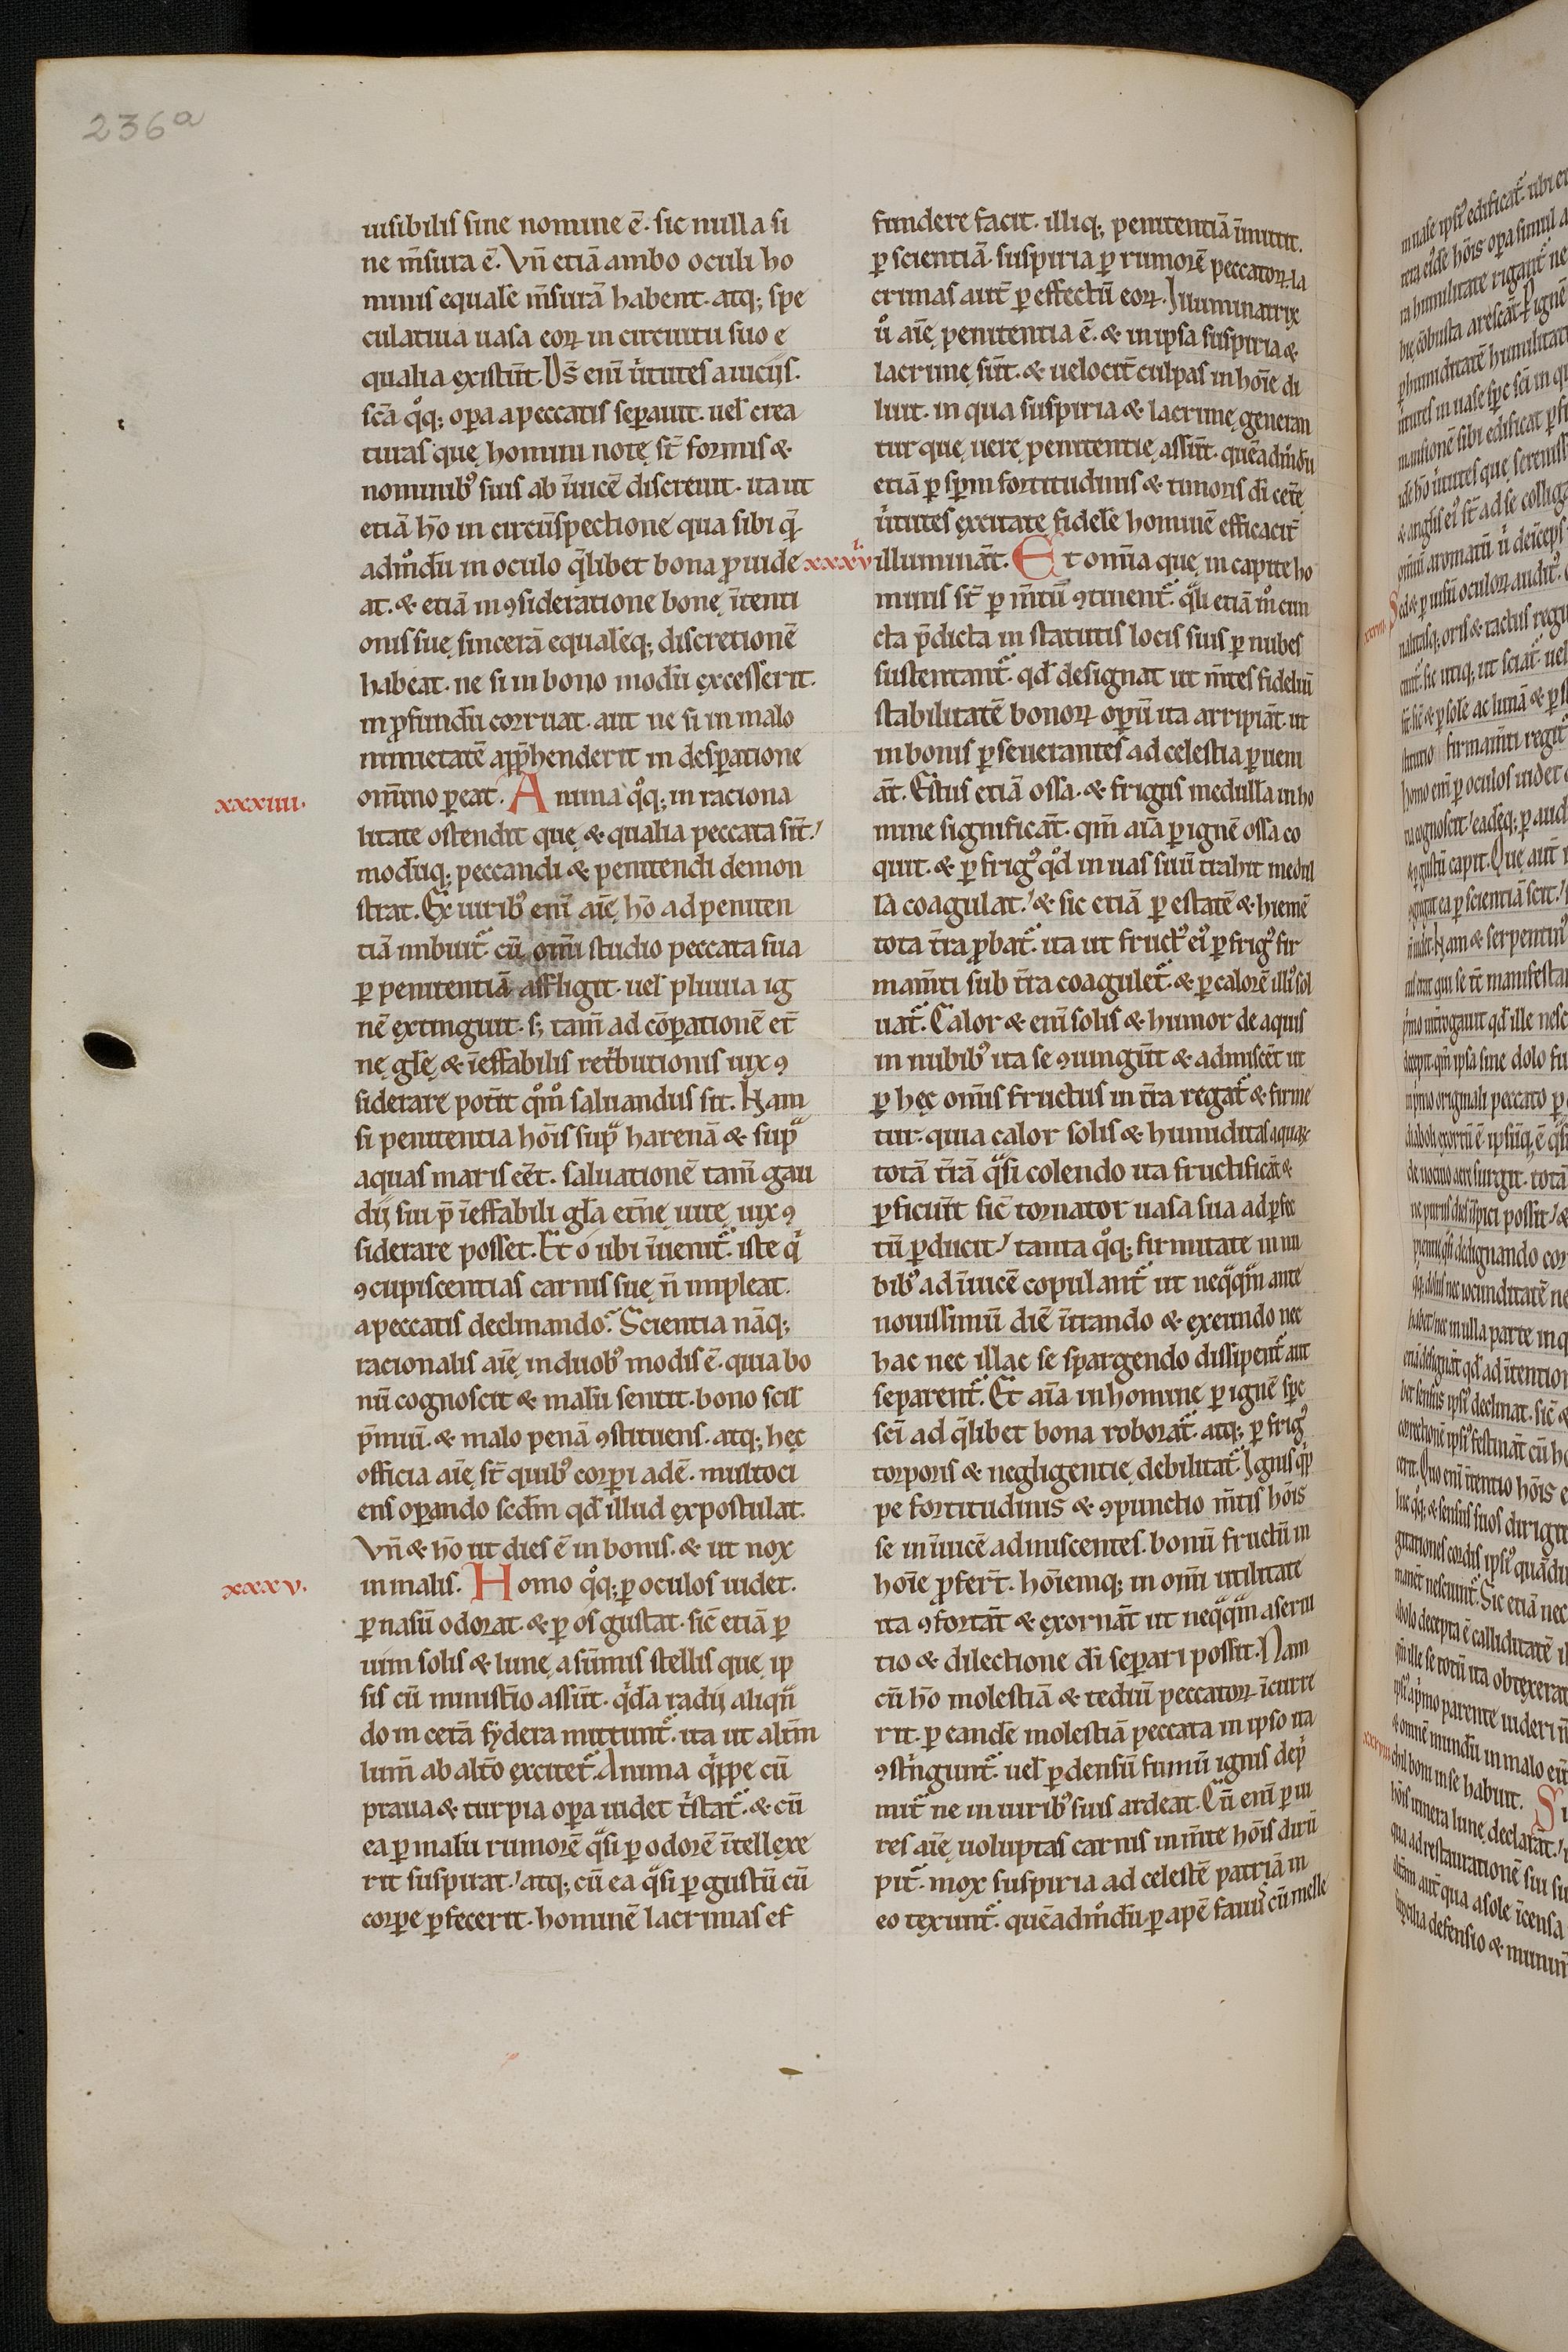 236a
uisibilis sine nomine ē. sic nulla si
ne m̄sura ē. Vn̄ etiā ambo oculi ho
minis equalē m̄surā habent. atq; spe
culatiua uasa eoꝝ in circuitu suo e
qualia existūt. D̄s enī ůtutes a uiciis.
scā qͦq; oꝑa a peccatis seꝑauit. uel crea
turas quę homini notę st̄ formis &
nominibꝰ suis ab īuicē discreuit. ita ut
etiā hō in circūspectione qua sibi q̄
admͦdū in oculo q̄libet bona ꝓuide
at. & etiā in ꝯsideratione bonę ītenti
onis suę sincerā equalēq; discretionē
habeat. ne si in bono modū excesserit.
in ꝓfundū corruat. aut ne si in malo
nimietatē app̄henderit in desꝑatione
om̄ino ꝑeat. Anima qͦq; in raciona
xxxiiii.
litate ostendit quę & qualia peccata sīt.
modūq; peccandi & penitendi demon
strat. Ex uiribꝰ enī aīę hō ad peniten
tiā imbuit᷑ cū om̄i studio peccata sua
ꝑ penitentiā affligit. uel pluuia ig
nē extinguit. s; tam̄ ad cōꝑationē et̄
nę glę̄ & īeffabilis ret̄butionis uix ꝯ
siderare pot̄it qͦmͦ saluandus sit. Nam
si penitentia hōis supᷓ harenā & supᷓ
aquas maris eēt. saluationē tam̄ gau
dii sui p̄ īeffabili gl̄a et̄nę uitę uix ꝯ
siderare posset. Et o ubi īuenit᷑ iste qͥ
ꝯcupiscentias carnis suę n̄ impleat.
a peccatis declinando. Scientia nāq;
racionalis aīę in duobꝰ modis ē. quia bo
nū cognoscit & malū sentit. bono scil
p̄miū. & malo penā ꝯstituens. atq; hęc
officia aīę st̄ quibꝰ corꝑi adē. multoci
ens oꝑando scdm̄ qd̄ illud expostulat.
Vn̄ & hō ut dies ē in bonis. & ut nox
in malis. Homo qͦq; ꝑ oculos uidet.
xxxv.
ꝑ nasū odorat. & ꝑ os gustat. sic̄ etiā ꝑ
uim solis & lunę a sūmis stellis quę ip
sis cū minist̄io assūt. q̄da radii aliqn̄
do in cet̄a sydera mittunt᷑. ita ut alt̄m
lum̄ ab alt̄o excitet᷑. Anima qͥppe cū
praua & turpia oꝑa uidet t̄stat᷑. & cū
ea ꝑ malū rumorē qᷓsi ꝑ odorē ītellexe
rit suspirat. atq; cū ea qᷓsi ꝑ gustū cū
corꝑe ꝑfecerit. hominē lacrimas ef
fundere facit. illiq; penitentiā īmittit.
ꝑ scientiā. suspiria ꝑ rumorē peccatoꝝ. la
crimas aut̄ ꝑ effectū eoꝝ. Illuminatrix
uͦ aīę penitentia ē. & in ipsa suspiria &
lacrimę sūt. & uelocit̄ culpas in hoīe di
luit. in qua suspiria & lacrimę generan
tur que uerę penitentię assūt. quēadmͦdū
etiā ꝑ sp̄m fortitudinis & timoris dī cet̄ę
ůtutes excitatę fidelē hominē efficacit̄
illuminat̄. Et om̄ia quę in capite ho
xxxvi.
minis st̄ ꝑ m̄tū ꝯtinent᷑. qͣli etiā mͦ cun
cta p̄dicta in statutis locis suis ꝑ nubes
sustentant᷑. qd̄ designat ut m̄tes fideliū
stabilitatē bonoꝝ oꝑū ita arripiāt. ut
in bonis ꝑseuerantes ad celestia ꝑueni
āt. Estus etiā ossa. & frigus medullā in ho
mine significāt. qm̄ aīa ꝑ ignē ossa co
quit. & ꝑ frigꝰ qͦd in uas suū trahit medul
lā coagulat. & sic etiā ꝑ estatē & hiemē
tota t̄ra ꝓbat᷑. ita ut fructꝰ eiꝰ ꝑ frigꝰ fir
mam̄ti sub t̄ra coagulet᷑. & ꝑ calorē illiꝰ sol
uat᷑. Calor & enī solis & humor de aquis
in nubibꝰ ita se ꝯiungūt & admiscēt ut
ꝑ hęc om̄is fructus in t̄ra regat᷑ & firme
tur. quia calor solis & humiditas aquaꝝ
totā t̄rā qᷓsi colendo ita fructificāt &
ꝑficiūt sic̄ tornator uasa sua ad ꝑfec
tū ꝑducit. tanta qͦq; firmitate in nu
bibꝰ ad īuicē copulant᷑ ut neqͣqͣm ante
nouissimū diē ītrando & exeundo nec
hac nec illac se spargendo dissipent᷑ aut
separent᷑. Et aīa in homine ꝑ ignē spc̄
scī ad q̄libet bona roborat᷑. atq; ꝑ frigꝰ
torporis & negligentię debilitat᷑. Ignis qͥp
pe fortitudinis & ꝯpunctio m̄tis hōis
se in īuicē admiscentes. bonū fructū in
hoīe ꝓfert̄. hoīemq; in om̄i utilitate
ita ꝯfortāt & exornāt ut neqͣqͣm a serui
tio & dilectione dī seꝑari possit. Nam
cū hō molestiā & tediū peccatoꝝ īcurre
rit. ꝑ eandē molestiā peccata in ipso ita
ꝯst̄ngunt᷑. uel ꝑ densū fumū ignis depͥ
mit᷑ ne in uiribꝰ suis ardeat. Cū enī ꝑ ui
res aīę uoluptas carnis in m̄te hōis dirū
pit᷑. mox suspiria ad celestē patriā in
eo texunt᷑. quēadmͦdū ꝑ apē fauus cū melle